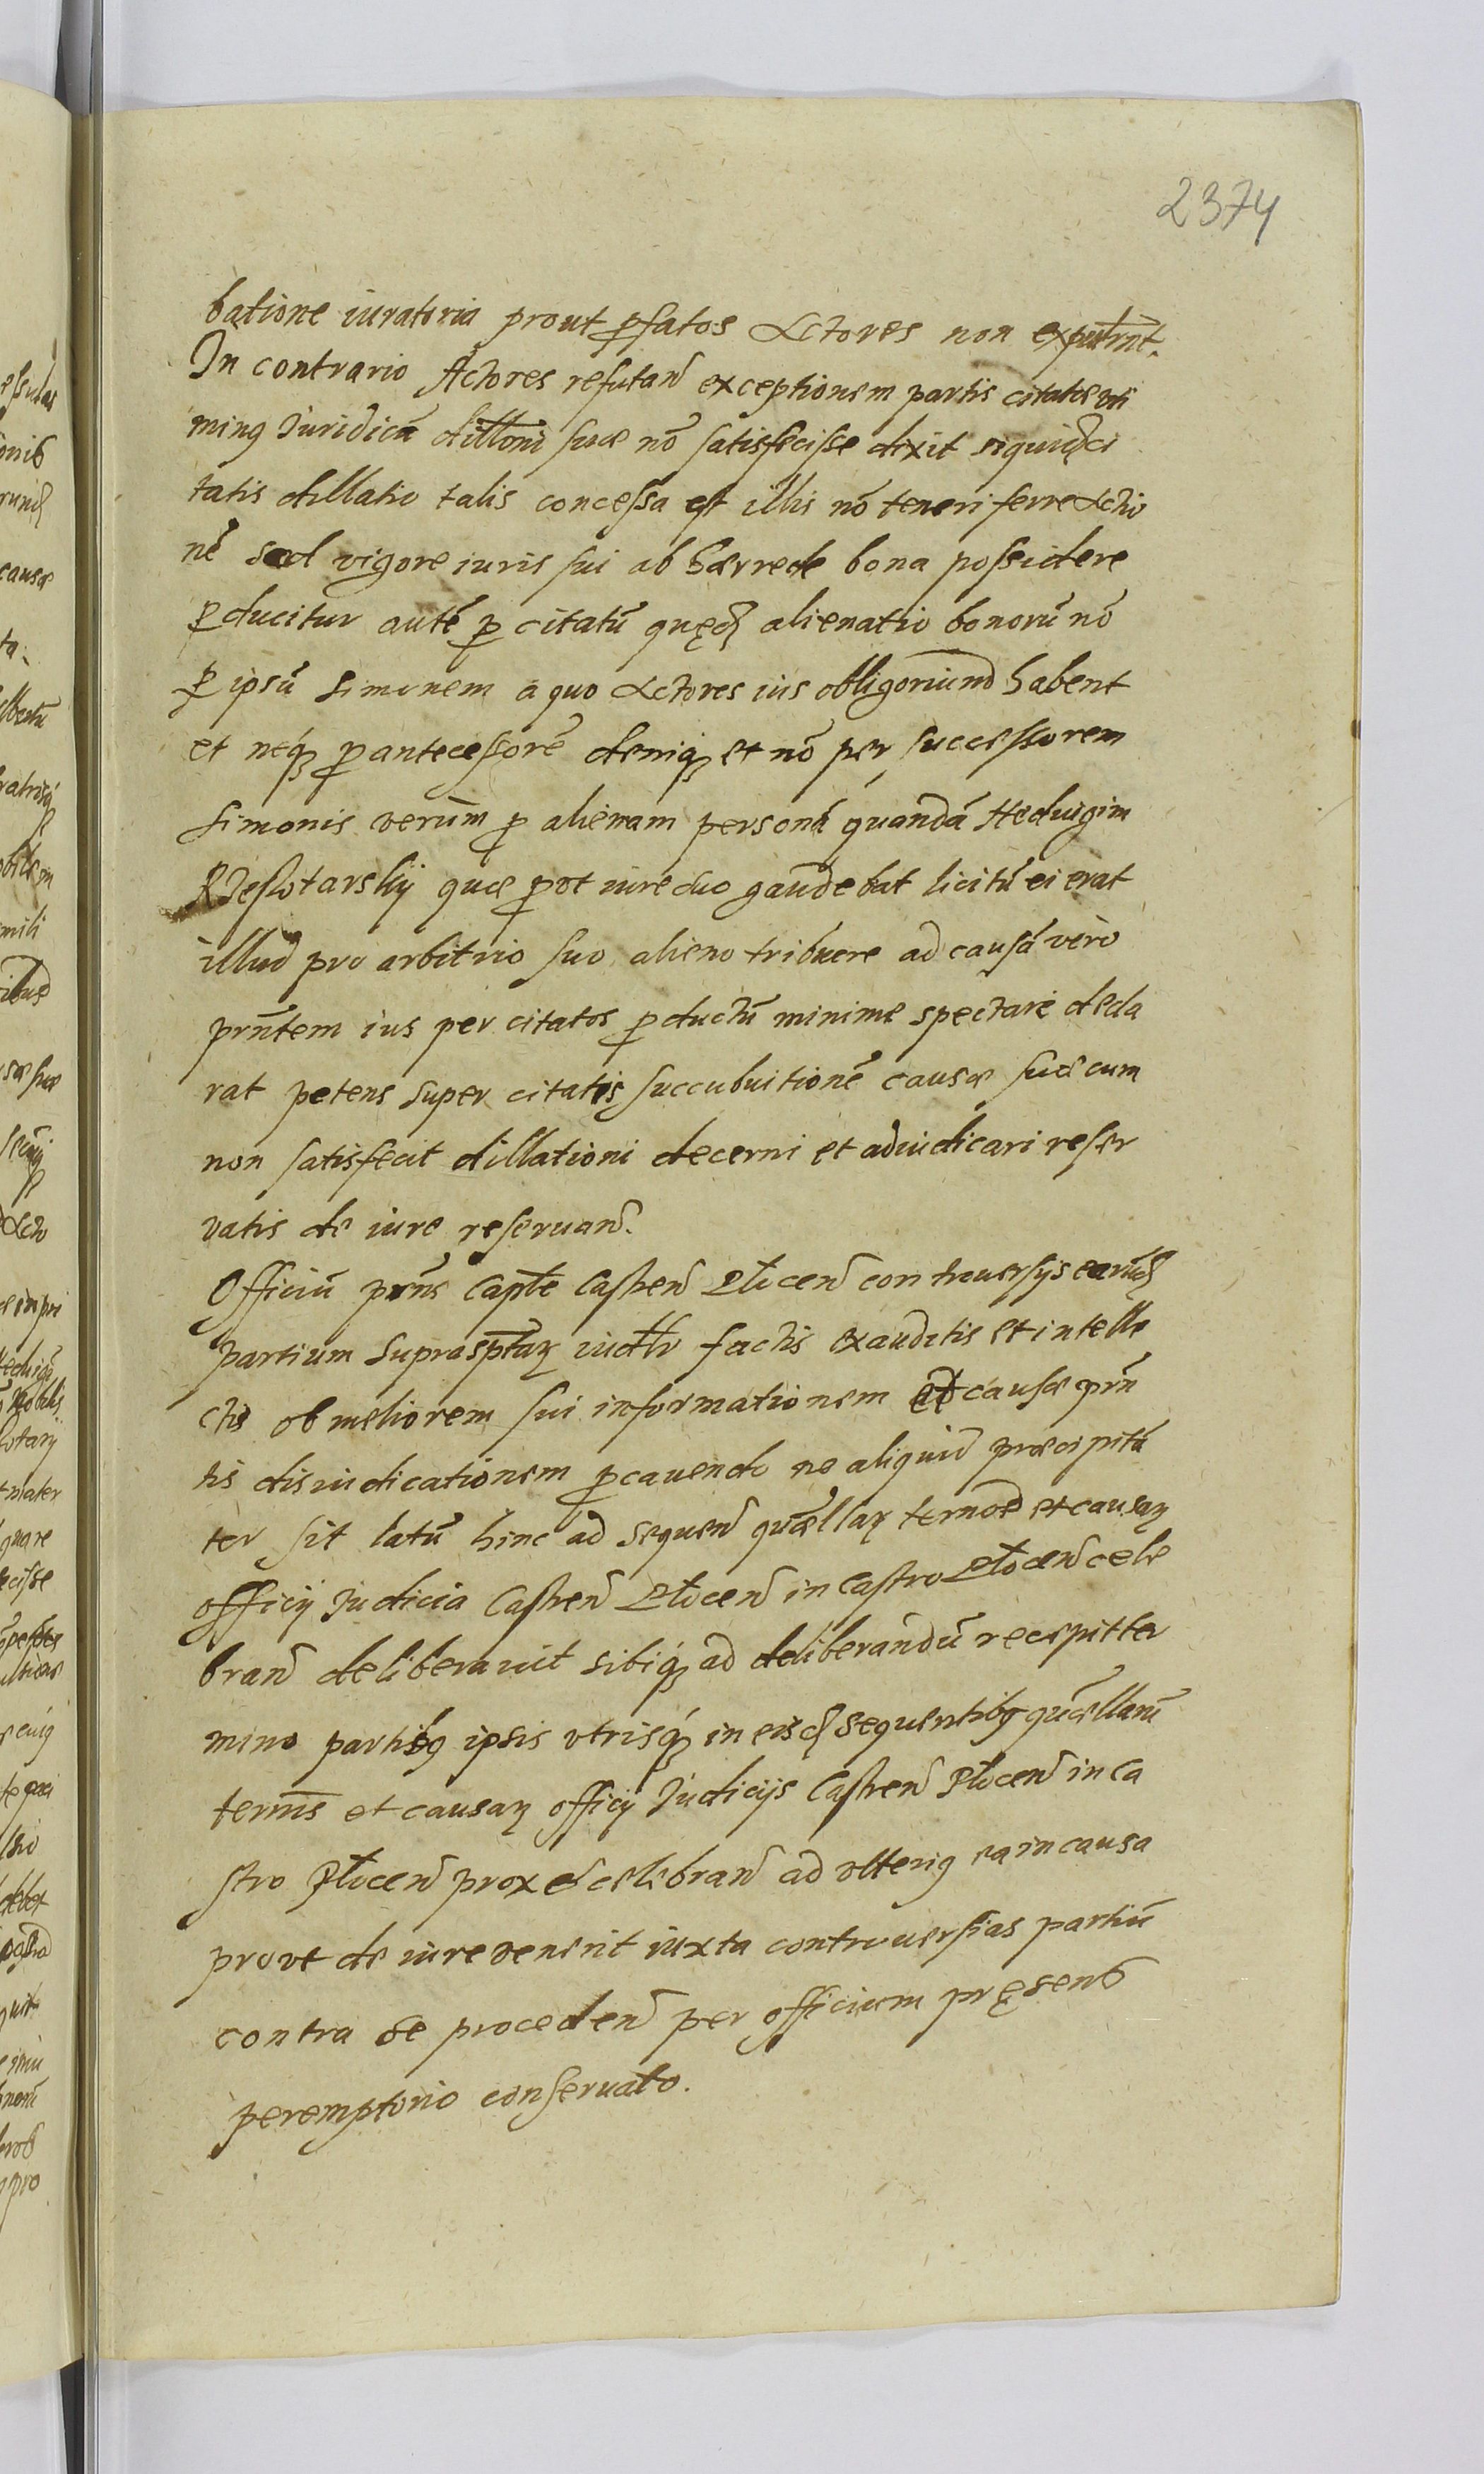 2374
batione iuratoria prout pfatos Actores non
In contrario Actores refutan exceptionem partis citatæ uti
minꝰ Juridicã suæ nõ satisfecisse dixit siquidẽ ci
tatis dillatio talis concessa est illis nõ teneri ferre Actio
nẽ sed vigore iuris sui ab hærrede bona possidere
pducitur autẽ p citatũ quędã alienatio bonorũ nõ
p ipsũ Simonem a quo Actores ius habent
et neqȝ p antecessorẽ deniqȝ et nõ per successorem
Simonis verùm p alienam personã quandã Heduigim
quæ put iure suo gaudebat licitũ ei erat
illud pro arbitrio suo alieno tribuere ad causã verò
prñtem ius per citatos pductũ minime spectare decla
rat petens super citatis succubuitionẽ causæ suæ cum
non satisfecit dillationi decerni et adiudicari reser
vatis de iure reseruan.
Officiũ prñs Capte Castren Plocen controuersijs earũd
partium suprasptarꝝ iudtr factis exauditis et intelle
ctis ob meliorem sui informationem et causæ prñ
tis disiudicationem pcauendo ne aliquid præcipitã
ter sit latũ hinc ad sequen quællarꝝ termos et causarꝝ
officij Judicia Castren Plocen in Castro Plocen cele
bran deliberauit sibiqȝ ad deliberandũ recepit ter
mino partibꝰ ipsis vtrisqȝ in eisd sequentibꝰ quællarũ
termis et causarꝝ officij Judicijs Castren Plocen in Ca
stro Plocen prox celebran ad vlteriꝰ ea in causa
prout de iure venerit iuxta controuersias partiũ
contra se proceden per officium pręsens
peremptorio conseruato.